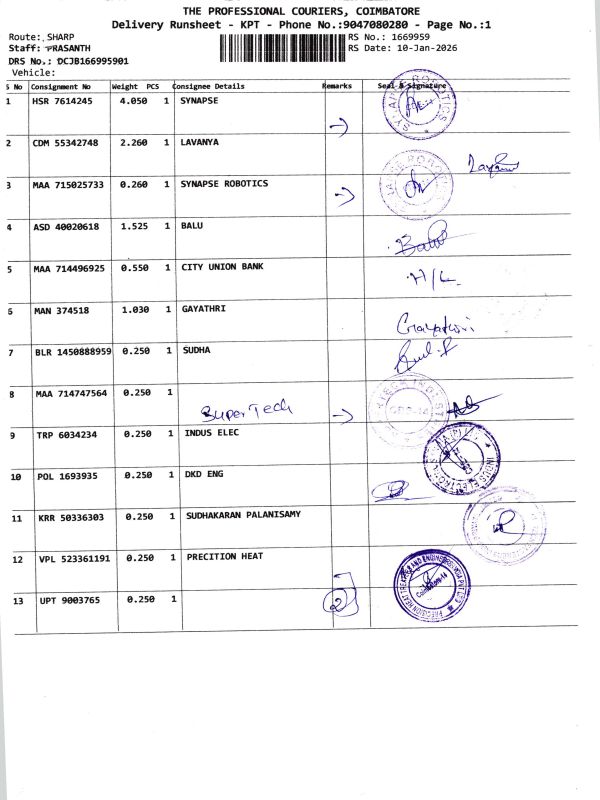 THE PROFESSIONAL COURIERS, COIMBATORE
Delivery Runsheet - KPT - Phone No.:9047080280 - Page No.:1
Route: SHARP
RS No.: 1669959
Staff: PRASANTH
RS Date: 10-Jan-2026
DRS No.: DCJB166995901
Vehicle:
S No Consignment No Weight PCS Consignee Details Remarks Seal & Signature
1 HSR 7614245 4.050 1 SYNAPSE
2 CDM 55342748 2.260 1 LAVANYA
3 MAA 715025733 0.260 1 SYNAPSE ROBOTICS
4 ASD 40020618 1.525 1 BALU Balu
5 MAA 714496925 0.550 1 CITY UNION BANK H/L
6 MAN 374518 1.030 1 GAYATHRI Gayathri
7 BLR 1450888959 0.250 1 SUDHA
8 MAA 714747564 0.250 1 Super Tech
9 TRP 6034234 0.250 1 INDUS ELEC
10 POL 1693935 0.250 1 DKD ENG
11 KRR 50336303 0.250 1 SUDHAKARAN PALANISAMY
12 VPL 523361191 0.250 1 PRECITION HEAT
13 UPT 9003765 0.250 1 2